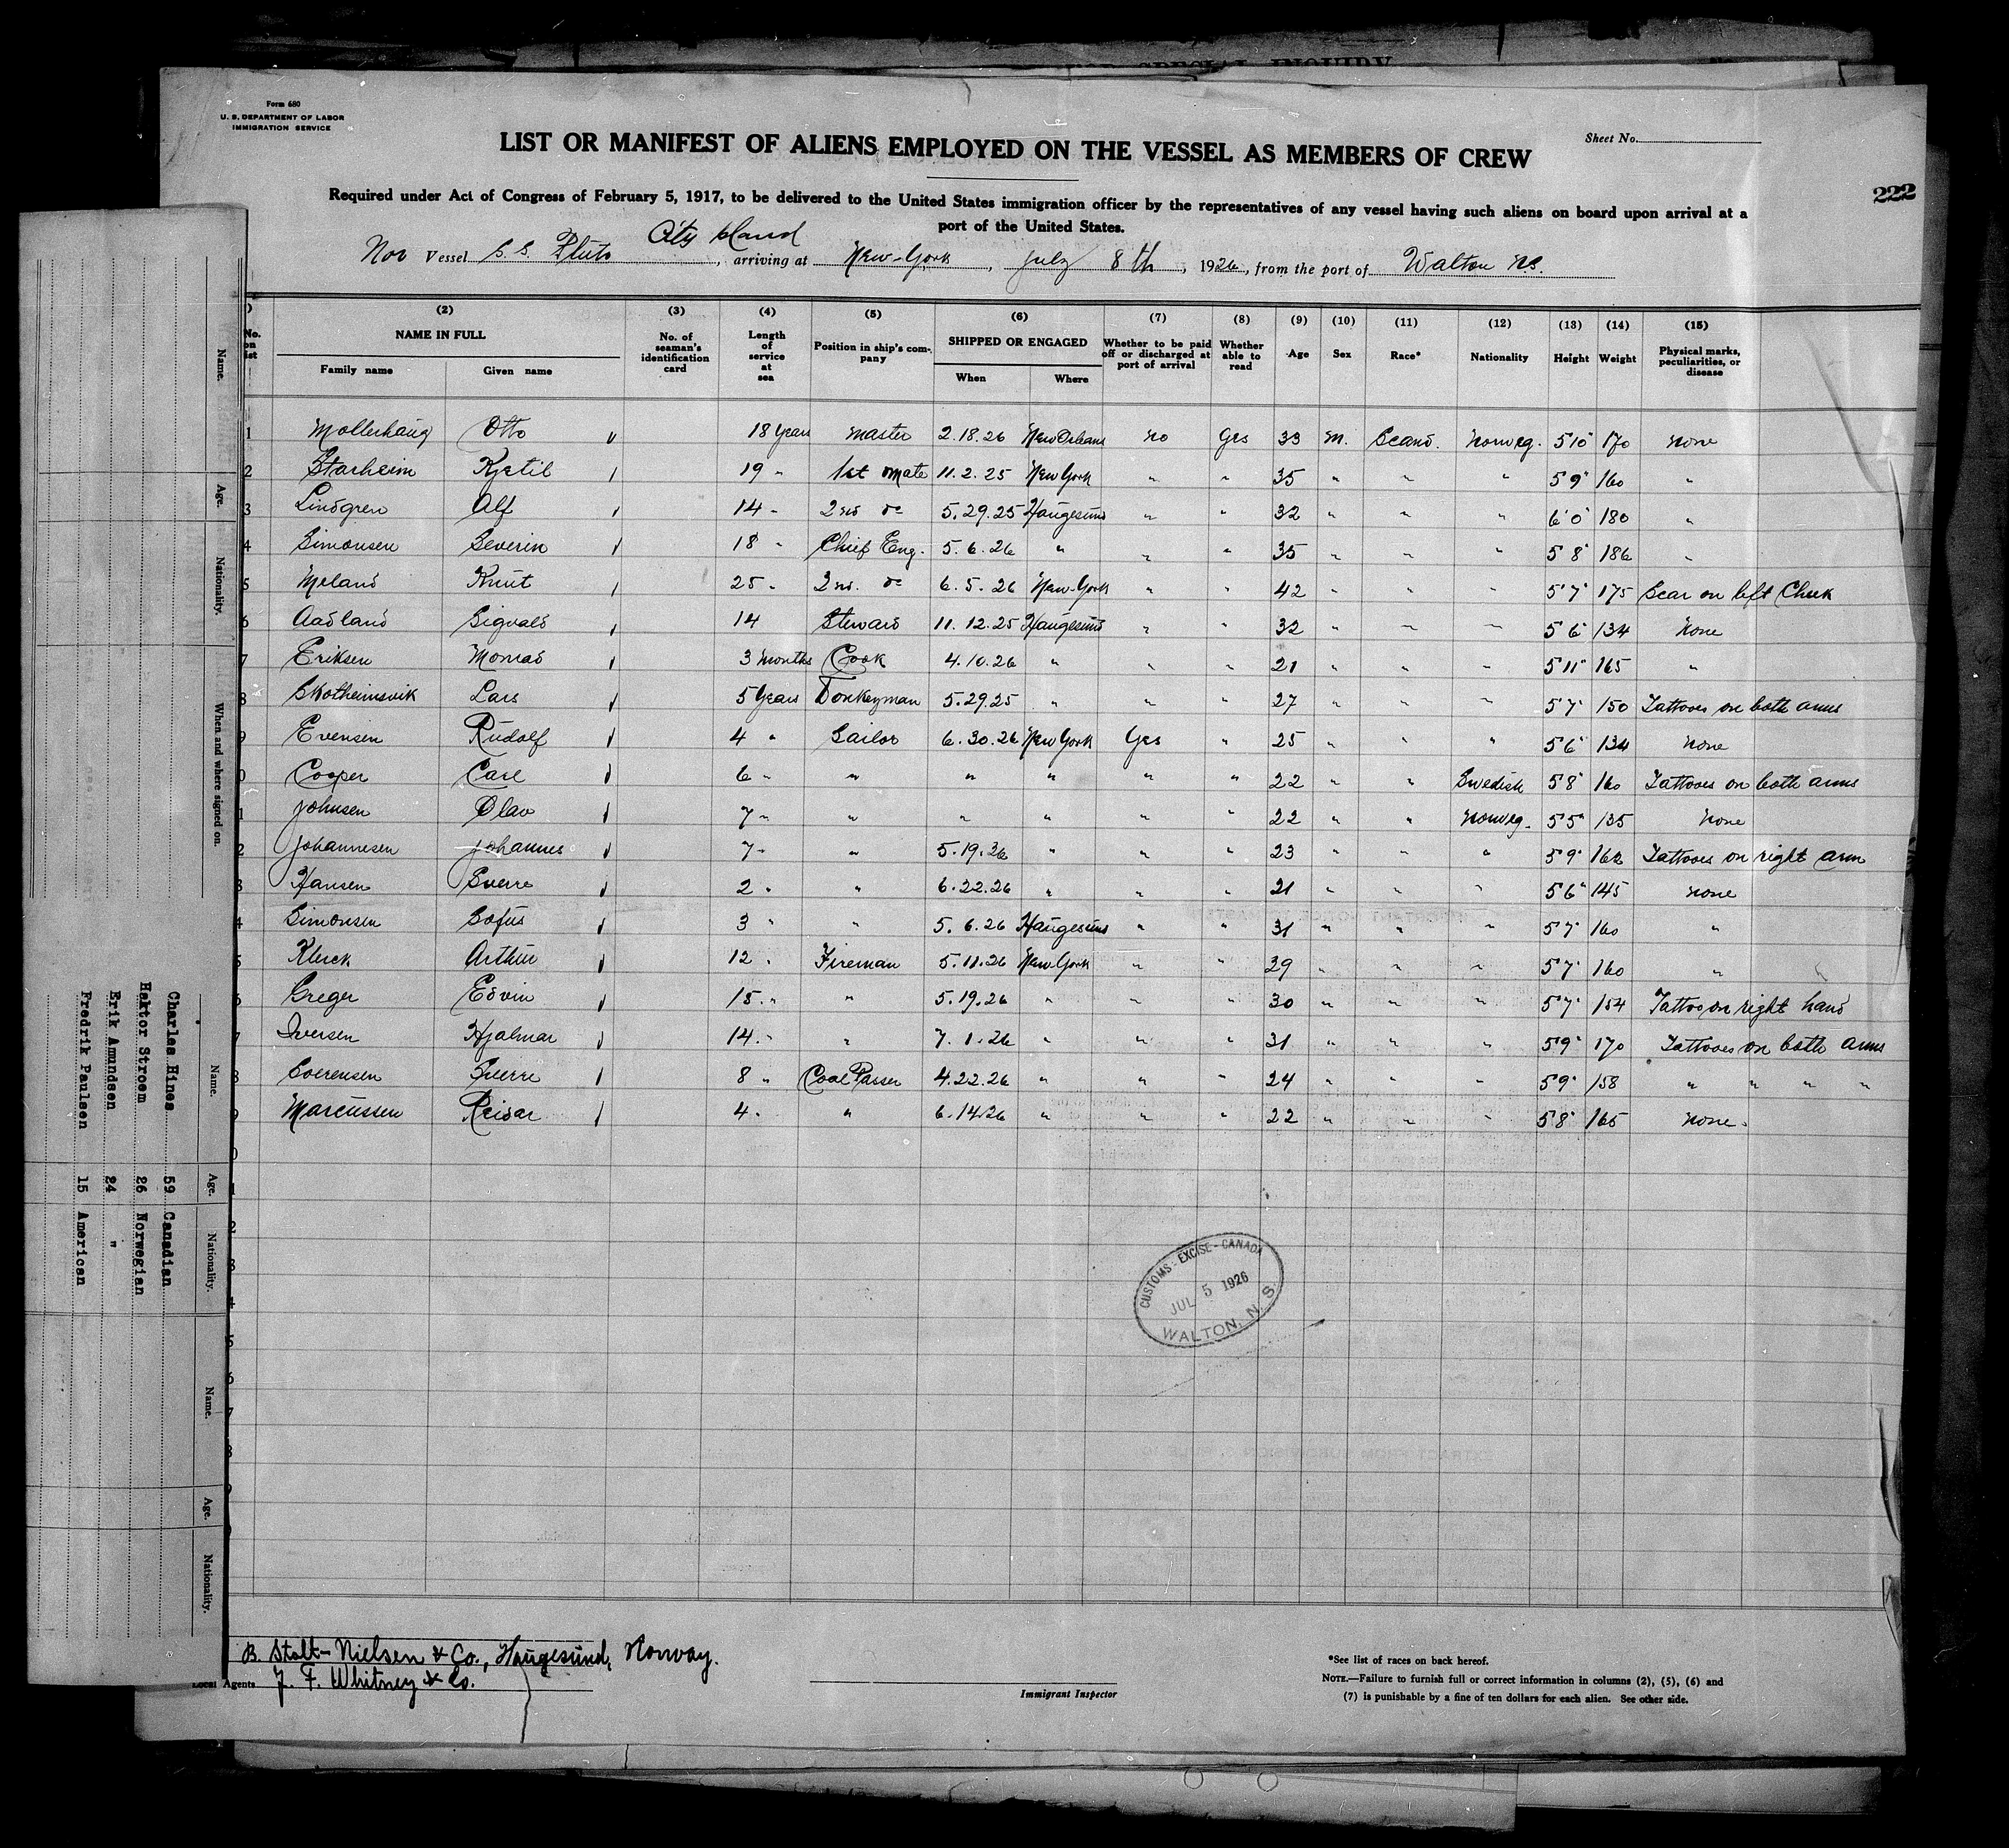 SPECIAL INQUIRY
Form 680
U. S. DEPARTMENT OF LABOR
IMMIGRATION SERVICE
Sheet No.
LIST OR MANIFEST OF ALIENS EMPLOYED ON THE VESSEL AS MEMBERS OF CREW
222
Required under Act of Congress of February 5, 1917, to be delivered to the United States immigration officer by the representatives of any vessel having such aliens on board upon arrival at a
port of the United States.
City Island
Nor Vessel S. S. Pluto, arriving at New-York, July 8th, 1926, from the port of Walton NS.
(2) (3) (4) (5) (6) (7) (8) (9) (10) (11) (12) (13) (14) (15)
No. on list NAME IN FULL Family name Given name No. of seaman's identification card Length of service at sea Position in ship's company SHIPPED OR ENGAGED When Where Whether to be paid off or discharged at port of arrival Whether able to read Age Sex Race* Nationality Height Weight Physical marks, peculiarities, or disease
1 Mollerhaug Otto 18 years master 2.18.26 New Orleans no yes 33 M. Scand. Norweg. 5'10" 170 none
2 Starheim Kjetil 19 " 1st mate 11.2.25 New York " " 35 " " " 5'9" 160 "
3 Lindgren Alf 14 " 2nd do 5.29.25 Haugesund " " 32 " " " 6'0" 180 "
4 Simonsen Severin 18 " Chief Eng. 5.6.26 " " " 35 " " " 5'8" 186 "
5 Meland Knut 25 " 2nd. do 6.5.26 New-York " " 42 " " " 5'7" 175 Scar on left Cheek
6 Aadland Sigvald 14 Steward 11.12.25 Haugesund " " 32 " " " 5'6" 134 None
7 Eriksen Monrad 3 months Cook 4.10.26 " " " 21 " " " 5'11" 165 "
8 Skotheimsvik Lars 5 years Donkeyman 5.29.25 " " " 27 " " " 5'7" 150 Tattoos on both arms
9 Evensen Rudolf 4 " Sailor 6.30.26 New York Yes " 25 " " " 5'6" 134 none
0 Cooper Carl 6 " " " " " " 22 " " Swedish 5'8" 160 Tattooes on both arms
1 Johnsen Olav 7 " " " " " " 22 " " Norweg. 5'5" 135 None
2 Johannesen Johannes 7 " " 5.19.26 " " " 23 " " " 5'9" 162 Tattooes on right arm
3 Hansen Sverre 2 " " 6.22.26 " " " 21 " " " 5'6" 145 none
4 Simonsen Sofus 3 " " 5.6.26 Haugesund " " 31 " " " 5'7" 160 "
5 Kluck Arthur 12 " Fireman 5.11.26 New-York " " 29 " " " 5'7" 160 "
6 Greger Edvin 15 " " 5.19.26 " " " 30 " " " 5'7" 154 Tattoo on right hand
7 Iversen Hjalmar 14 " " 7.1.26 " " " 31 " " " 5'9" 170 Tattooes on both arms
8 Soerensen Sverre 8 " Coal Passer 4.22.26 " " " 24 " " " 5'9" 158 " " " "
9 Marcussen Reidar 4 " " 6.14.26 " " " 22 " " " 5'8" 165 none.
CUSTOMS - EXCISE - CANADA
JUL 5 1926
WALTON, N. S.
B. Stolt-Nielsen & Co., Haugesund, Norway.
Local Agents J. F. Whitney & Co.
Immigrant Inspector
*See list of races on back hereof.
NOTE.—Failure to furnish full or correct information in columns (2), (5), (6) and
(7) is punishable by a fine of ten dollars for each alien. See other side.
Name. Age. Nationality. When and where signed on.
Name. Age. Nationality.
Charles Hines 59 Canadian
Haktor Stroem 26 Norwegian
Erik Amundsen 24 "
Fredrik Paulsen 15 American
Name. Age. Nationality.